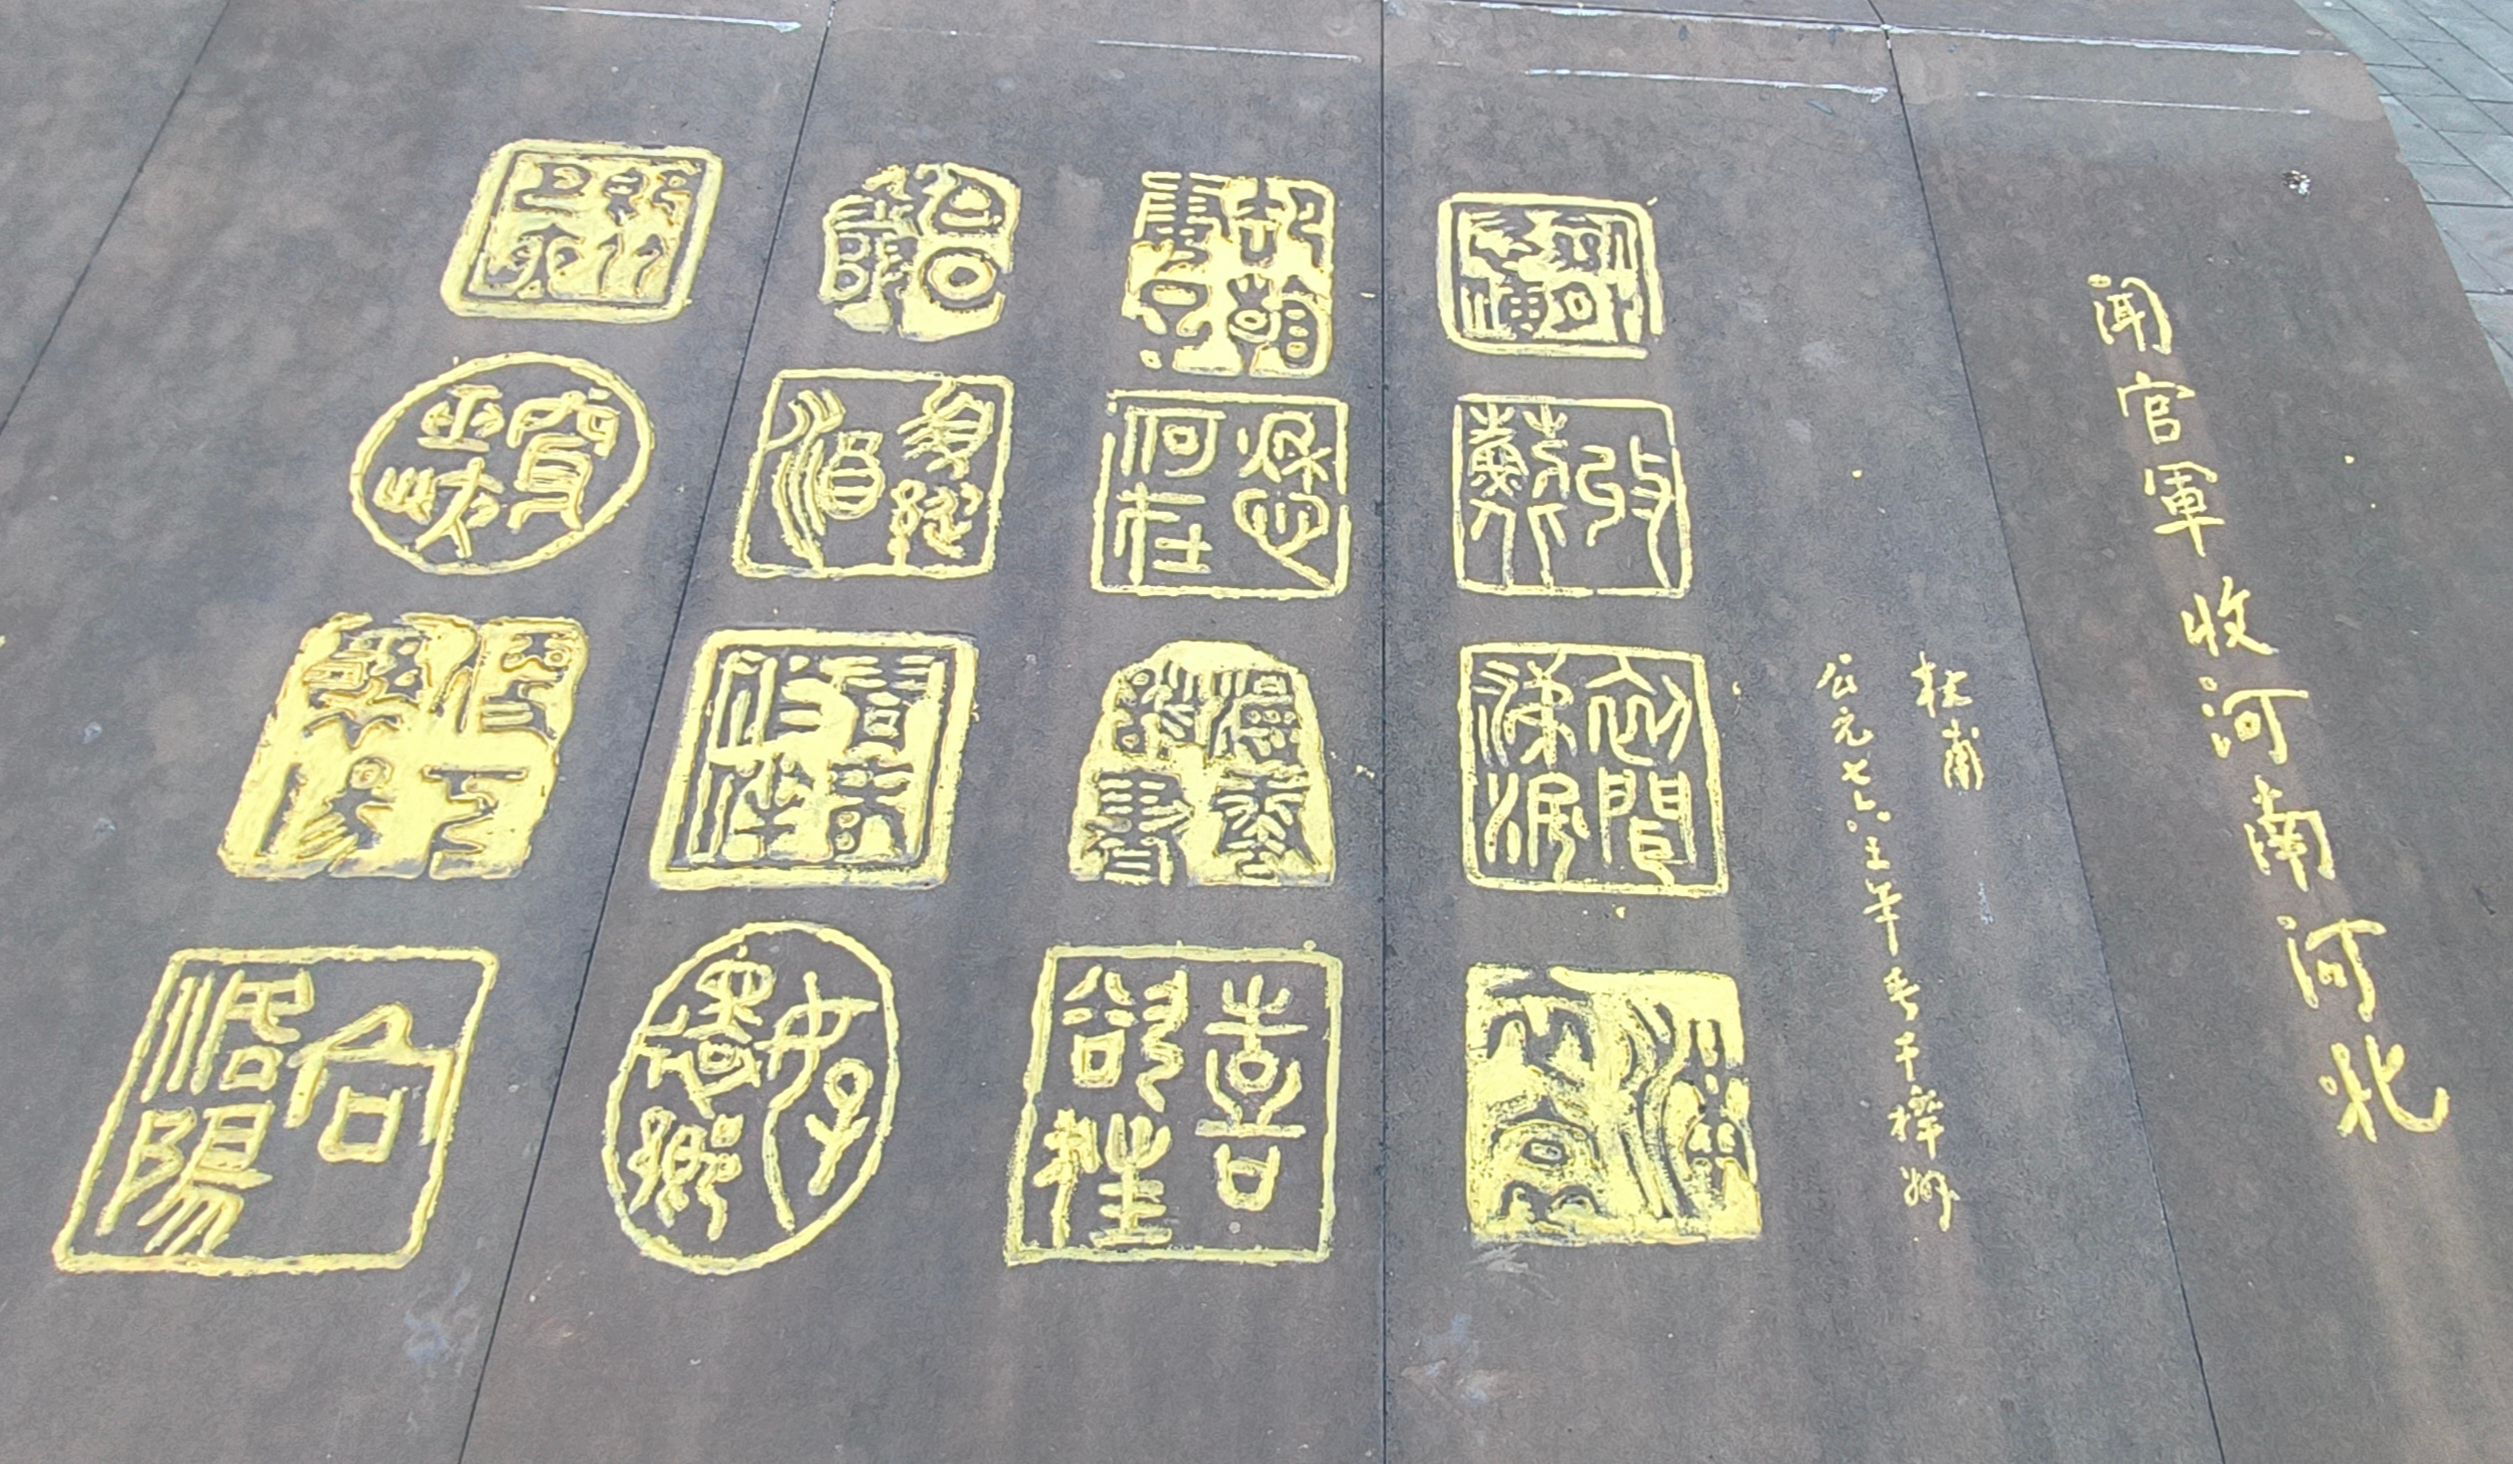 闻官軍收河南河北
杜甫
公元七六三年春于梓州
劍外忽傳
收薊北
初聞涕淚
滿衣裳
卻看妻子
愁何在
漫卷詩書
喜欲狂
白日放歌
須縱酒
青春作伴
好還鄉
即從巴峽
穿巫峽
便下襄陽
向洛陽